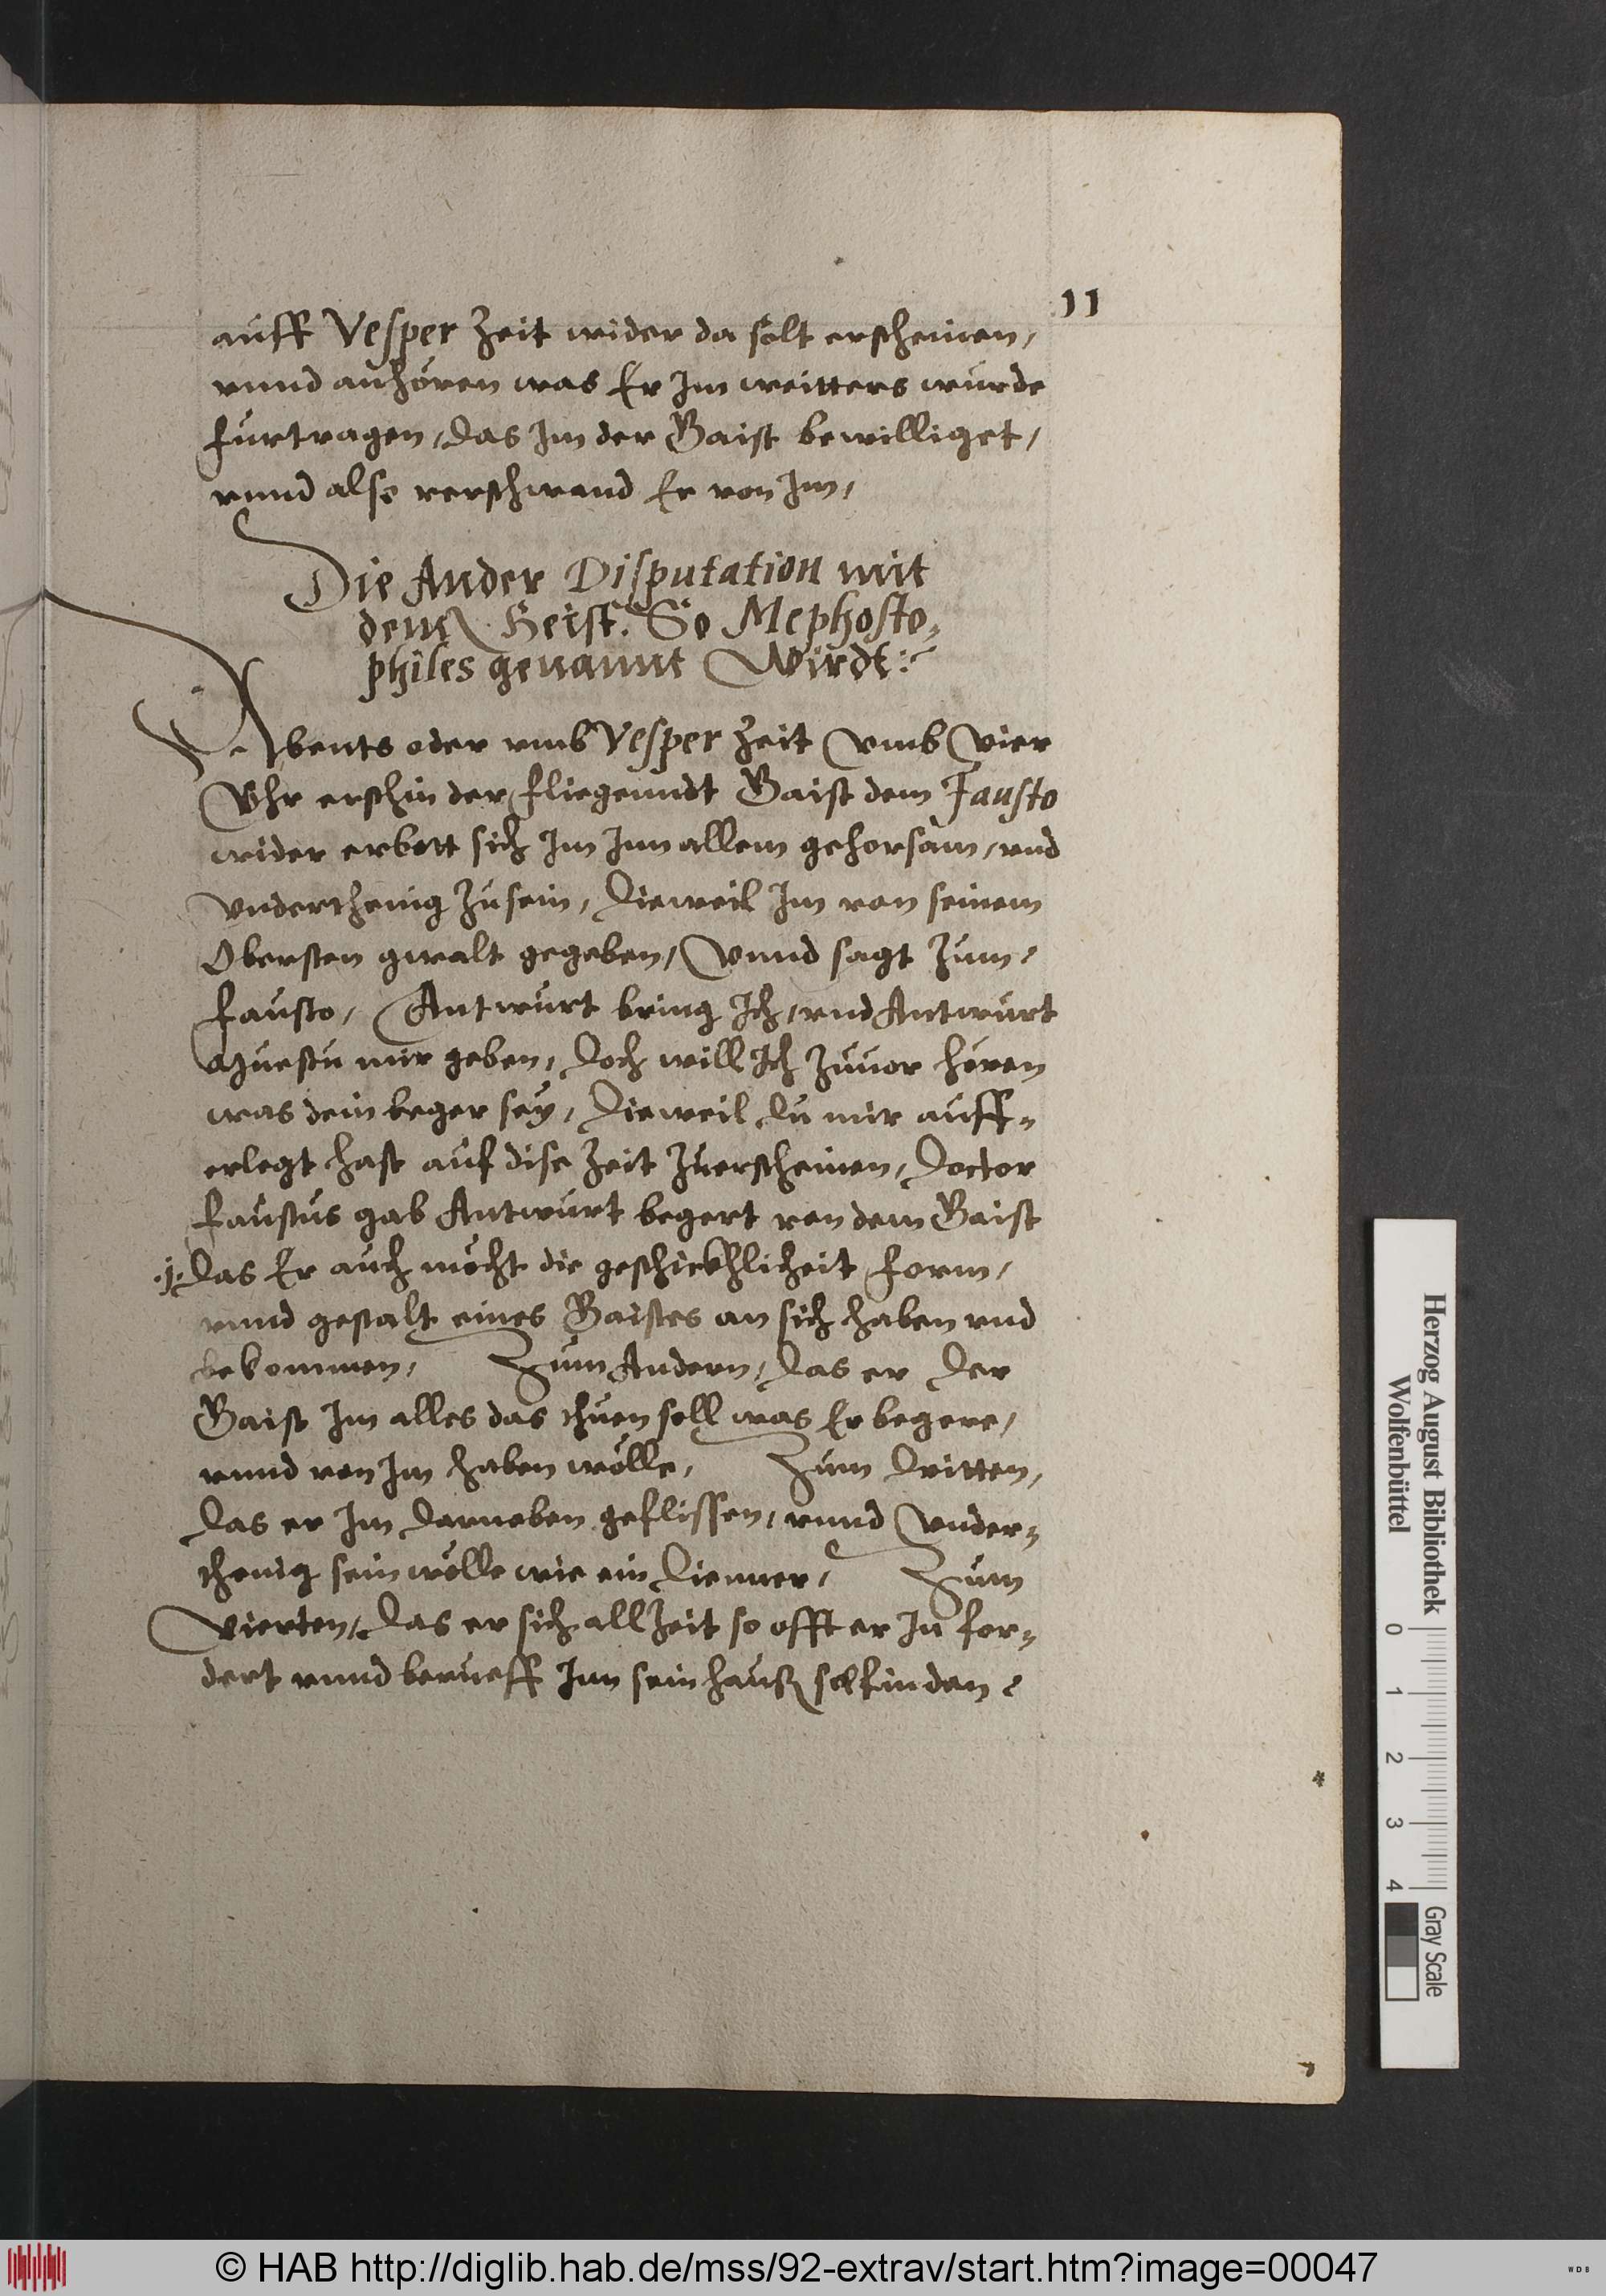 11
auff Vesper Zeit wider da solt erscheinen,
vnnd anhören was Er Im weitters wurde
furtragen, das Im der Gaist bewilliget,
vnnd also verschwand Er von Im,
Die Ander Disputation mit
dem Geist. So Mephosto,
philes genannt Wirdt:
Abents oder vmb Vesper Zeit Vmb Vier
Vhr erschin der fliegenndt Gaist dem Fausto
wider erbott sich Im Inn allem gehorsam, vnd
Vnderthenig Zusein, Dieweil Im von seinem
Obersten gwalt gegeben, Vnnd sagt Zum
Fausto, Antwurt bring Ich, vnd Antwurt
muestu mir geben, Doch will Ich Zuuor hören
was dein beger sey, Dieweil Du mir auff-
erlegt hast auf dise Zeit Zuerscheinen, Doctor
Faustus gab Antwurt begert von dem Gaist
.j. Das Er auch möcht die geschickhlicheit Form,
vnnd gestalt eines Gaistes an sich haben vnd
bekommen, Zum Andern, Das er Der
Gaist Im alles das thuen soll was Er begere,
vnnd von Im haben wölle, Zum Dritten,
Das er Im Darneben geflissen, vnnd Vnder-
thenig sein wölle wie ein Dienner, Zum
Vierten, Das er sich all Zeit so offt er In for-
dert vnnd berueff Inn sein hauß sol finden
Herzog August Bibliothek
Wolfenbüttel
0 1 2 3 4
Gray Scale
© HAB http://diglib.hab.de/mss/92-extrav/start.htm?image=00047
WDB